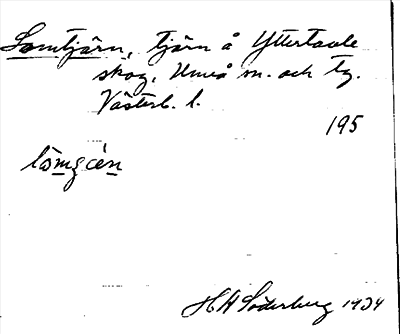 Lomtjärn, tjärn å Yttertavle
skog, Umeå m. och tg.
Västerb. l.
195
H H Söderberg 1934